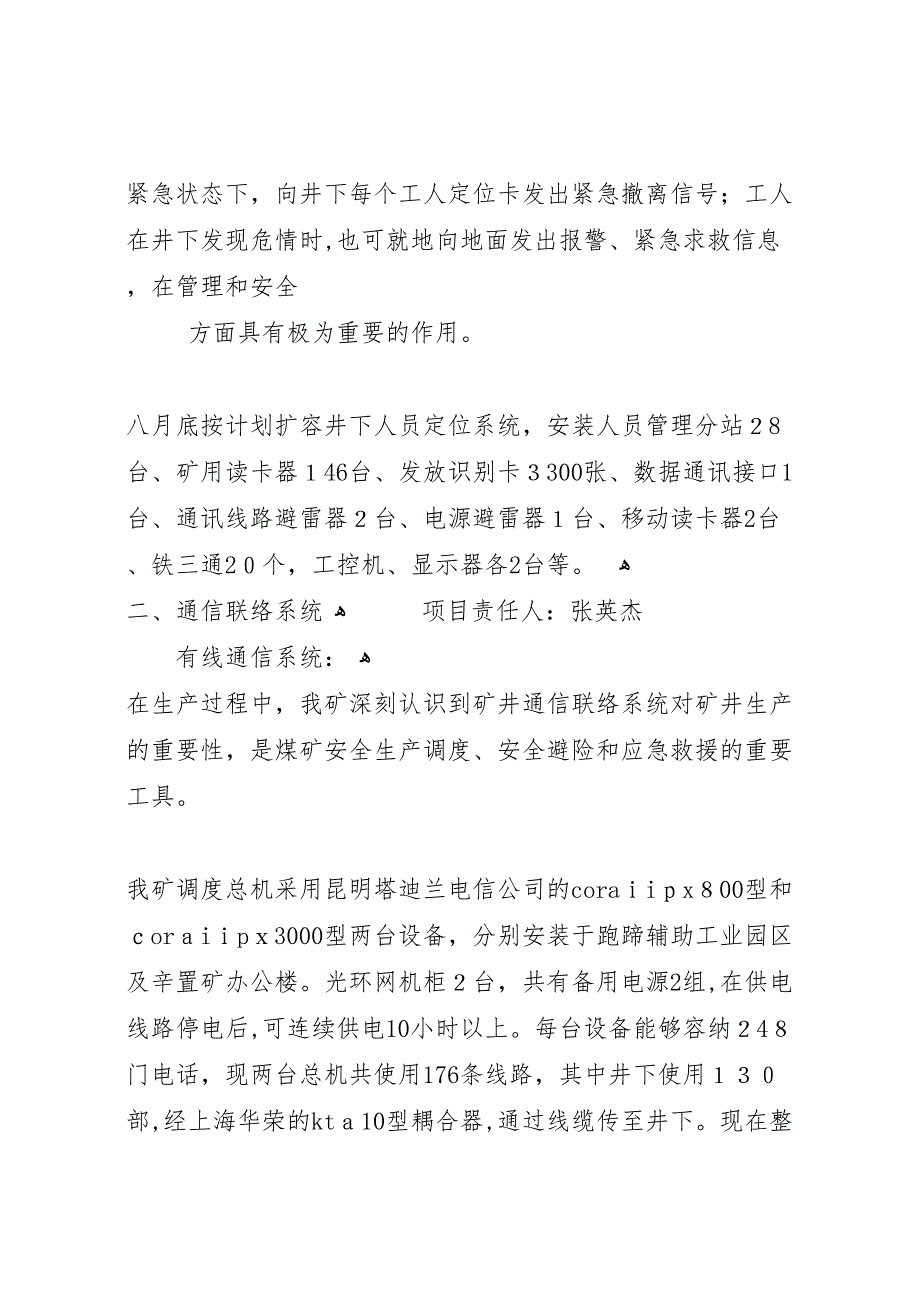 紧急状态下，向井下每个工人定位卡发出紧急撤离信号；工人
在井下发现危情时,也可就地向地面发出报警、紧急求救信息
，在管理和安全
方面具有极为重要的作用。
八月底按计划扩容井下人员定位系统，安装人员管理分站２8
台、矿用读卡器１46台、发放识别卡３300张、数据通讯接口1
台、通讯线路避雷器２台、电源避雷器１台、移动读卡器2台
、铁三通2０个，工控机、显示器各2台等。 ﻫ
二、通信联络系统 ﻫ 项目责任人：张英杰
有线通信系统： ﻫ
在生产过程中，我矿深刻认识到矿井通信联络系统对矿井生产
的重要性，是煤矿安全生产调度、安全避险和应急救援的重要
工具。
我矿调度总机采用昆明塔迪兰电信公司的coraｉｉpｘ８00型和
ｃorａｉｉpｘ3000型两台设备，分别安装于跑蹄辅助工业园区
及辛置矿办公楼。光环网机柜２台，共有备用电源2组,在供电
线路停电后,可连续供电10小时以上。每台设备能够容纳２4８
门电话，现两台总机共使用176条线路，其中井下使用１３０
部,经上海华荣的ktａ10型耦合器,通过线缆传至井下。现在整